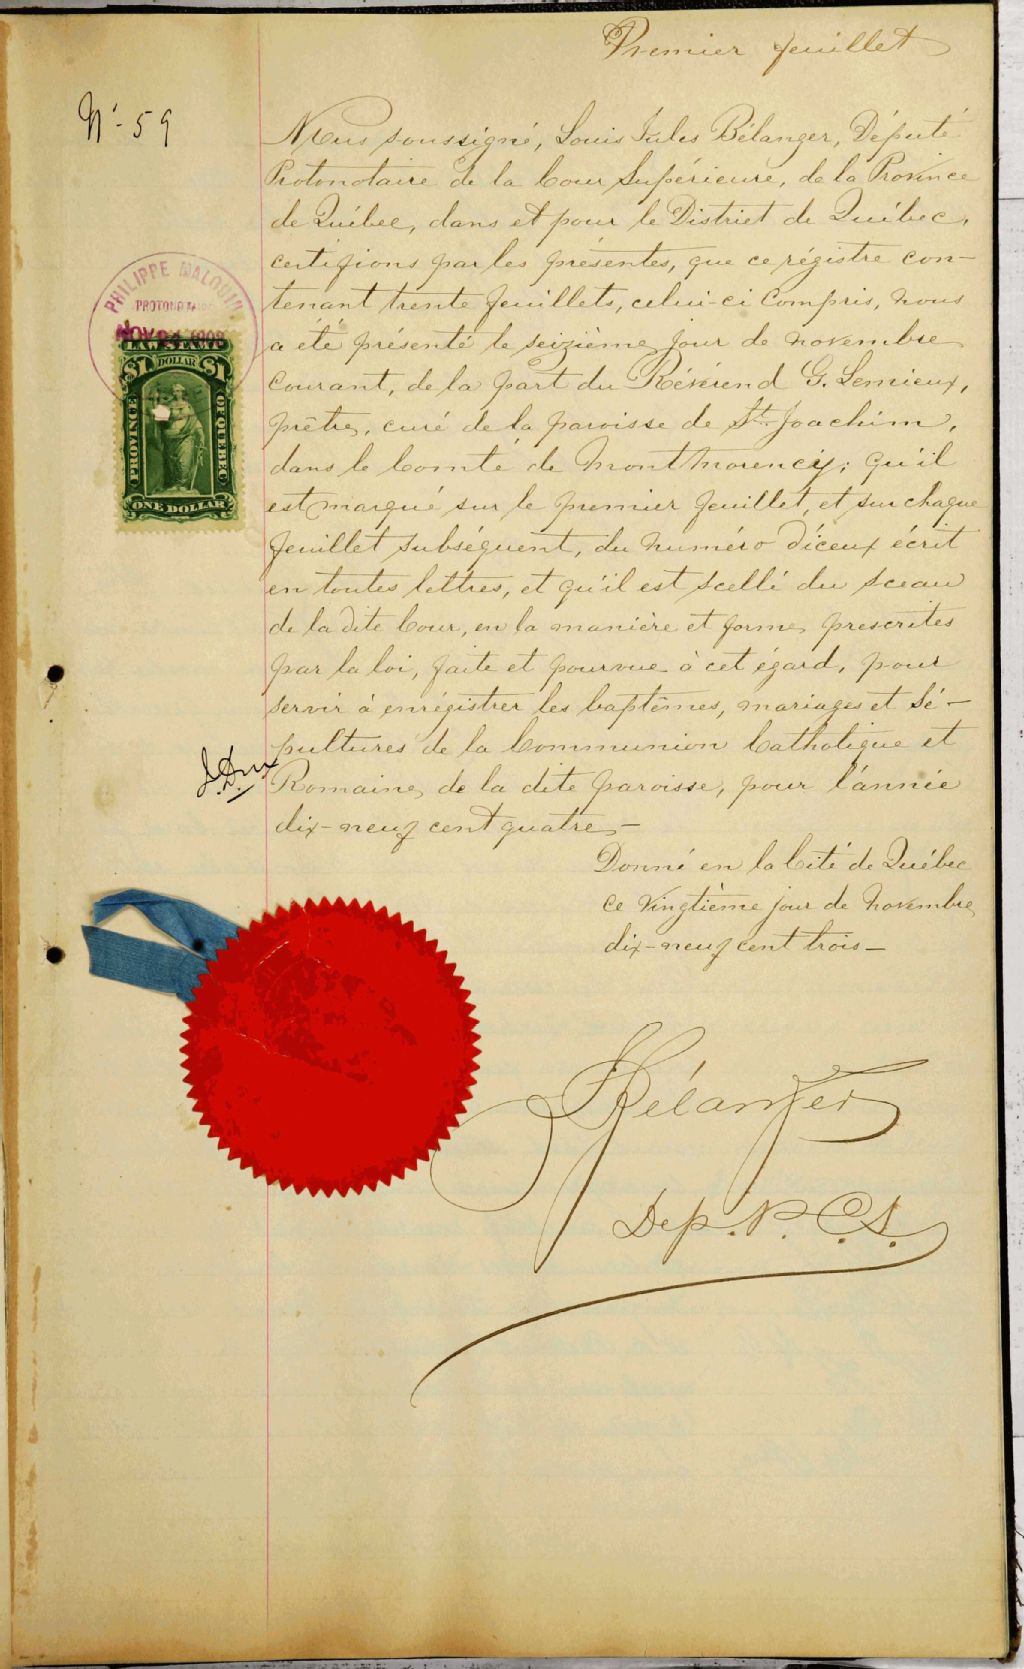 Premier feuillet
Nº 59
Nous soussigné, Louis Jules Bélanger, Député
Protonotaire de la Cour Supérieure, de la Province
de Québec, dans et pour le District de Québec,
certifions par les présentes, que ce régistre con-
tenant trente feuillets, celui-ci compris, nous
a été présenté le seizième jour de novembre
courant, de la part du Révérend G. Lemieux,
prêtre, curé de la paroisse de St. Joachim,
dans le Comté de Montmorency; qu'il
est marqué sur le premier feuillet, et sur chaque
feuillet subséquent, du numéro d'iceux écrit
en toutes lettres, et qu'il est scellé du sceau
de la dite Cour, en la manière et forme prescrites
par la loi, faite et pourvue à cet égard, pour
servir à enrégistrer les baptêmes, mariages et sé-
pultures de la Communion Catholique et
Romaine, de la dite paroisse, pour l'année
dix-neuf cent quatre,-
Donné en la Cité de Québec
ce vingtième jour de novembre
dix-neuf cent trois-
LJBélanger
Dep. P. C. S.
PHILIPPE MALOUIN
PROTONOTAIRE
NOV
LAW STAMP
$1 DOLLAR $1
PROVINCE
OF QUEBEC
ONE DOLLAR